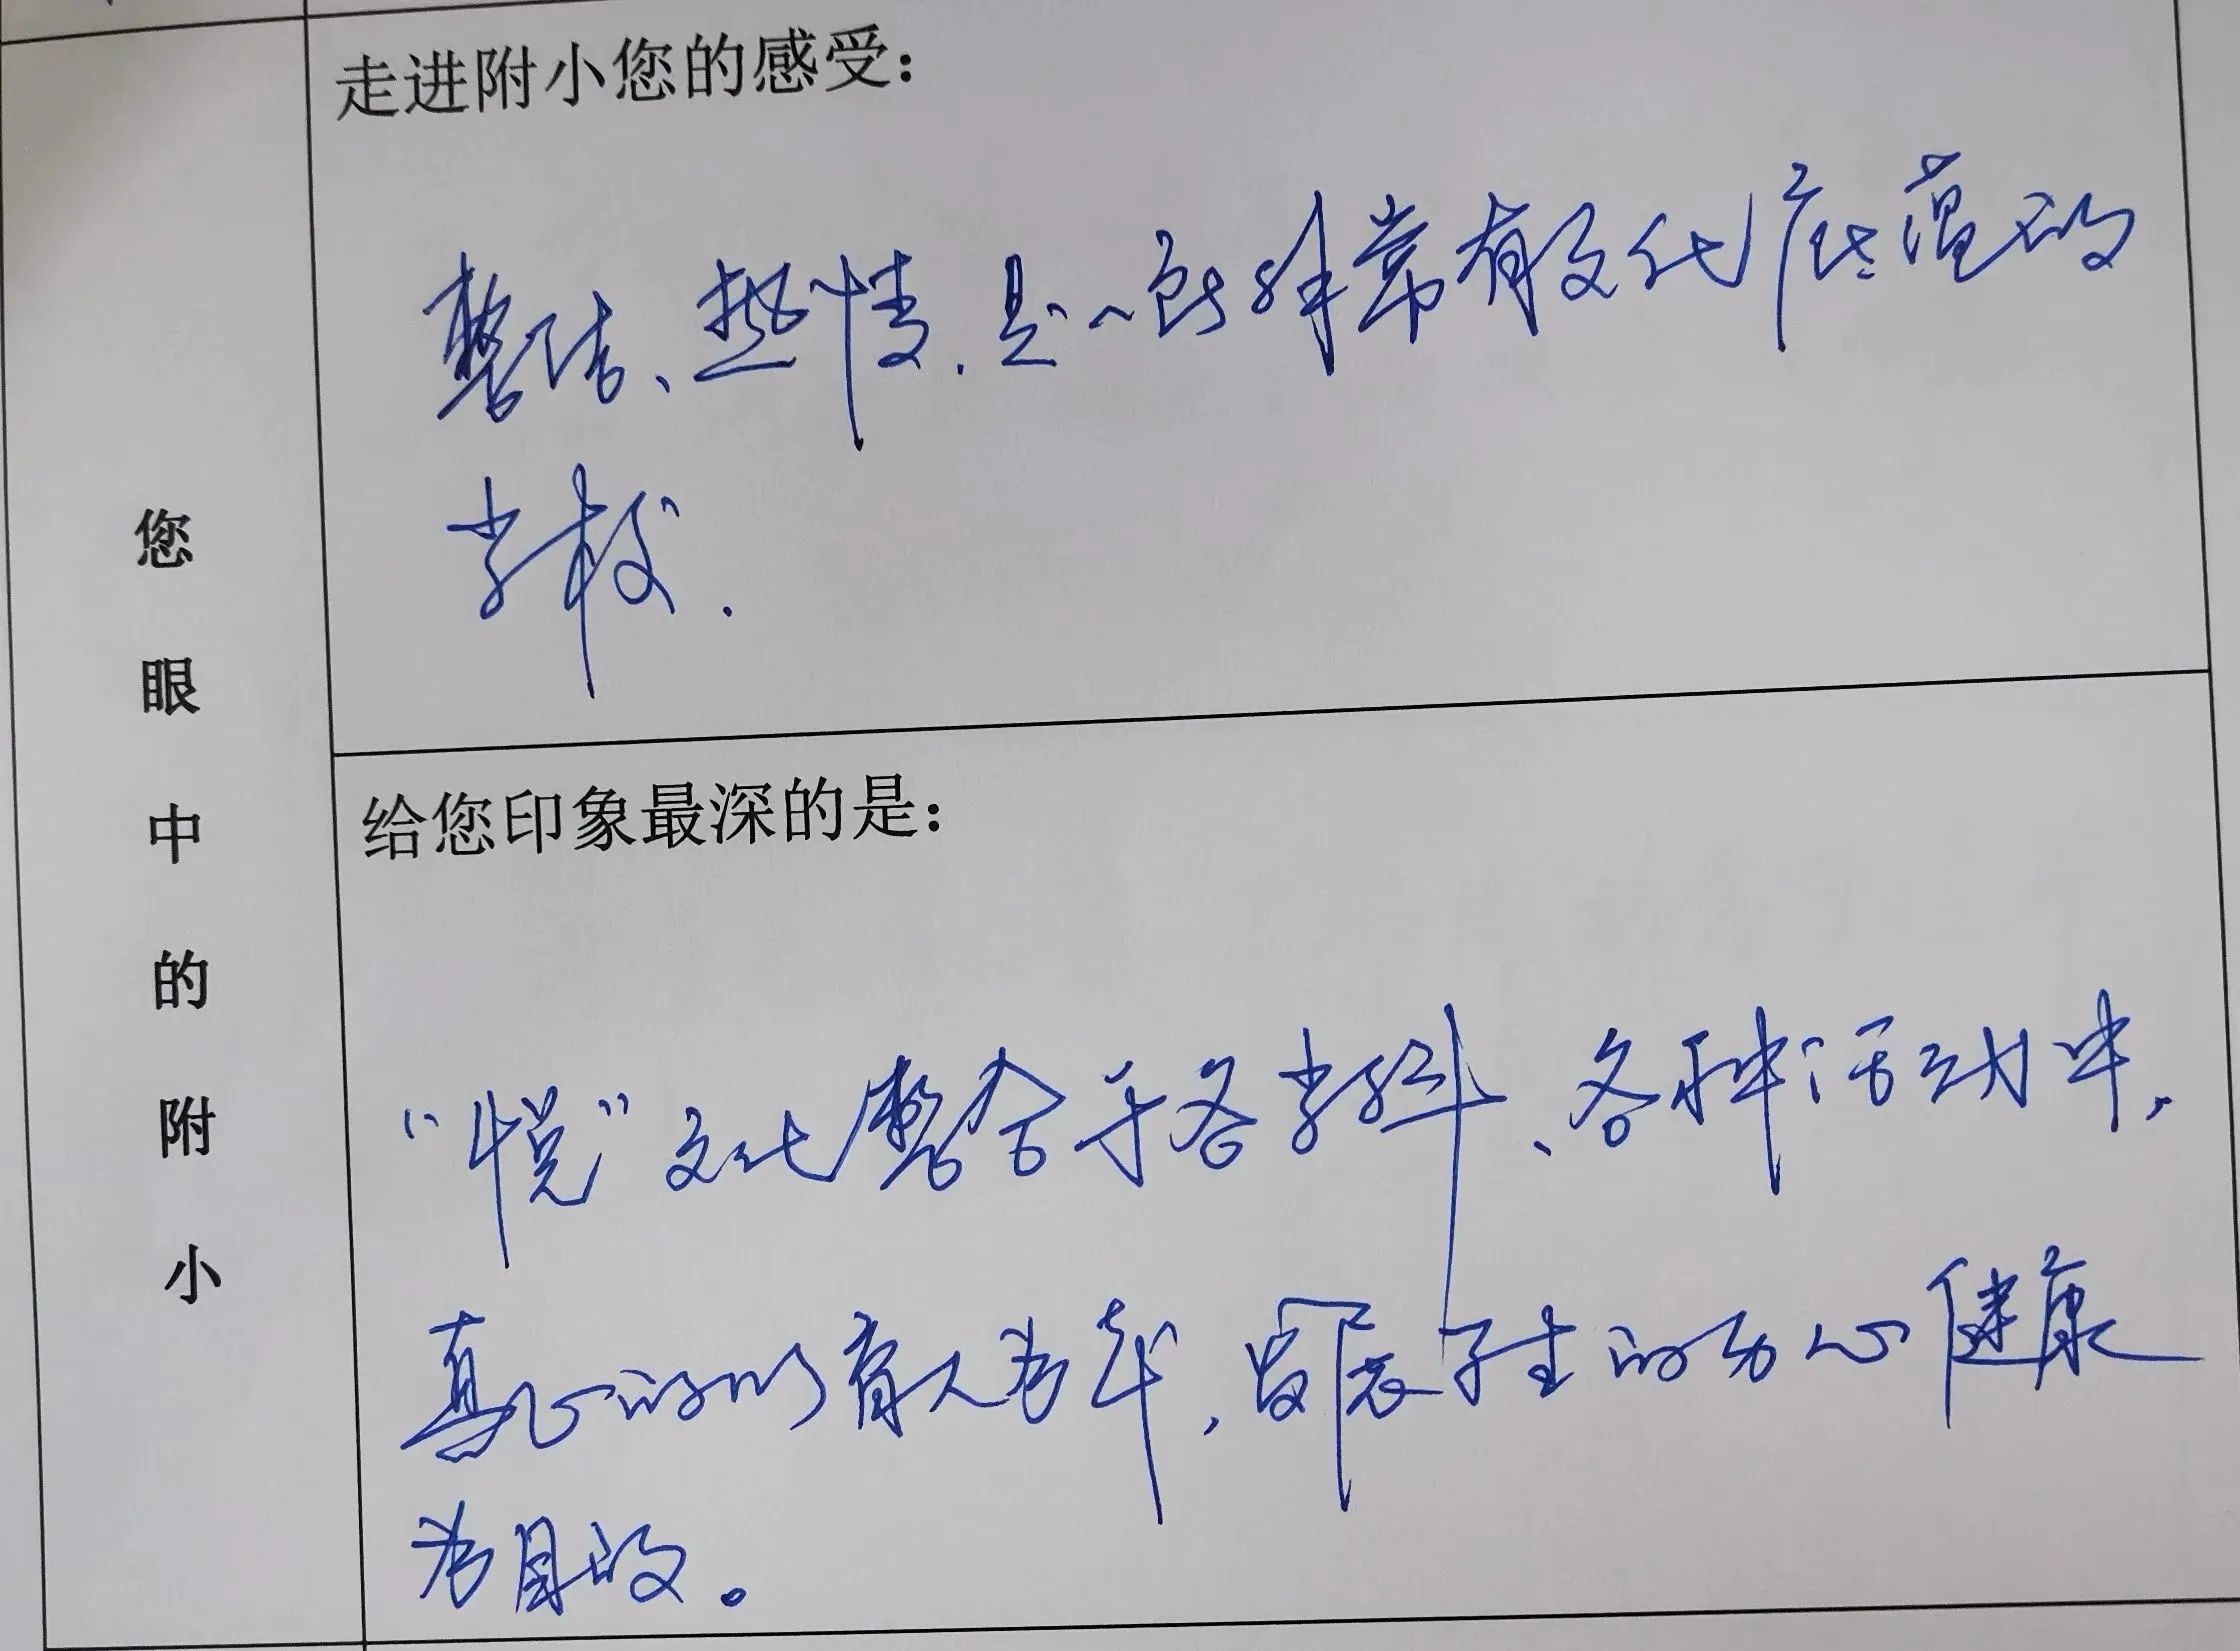 您眼中的附小
走进附小您的感受：
整洁、热情.是一所非常有文化底蕴的
学校.
给您印象最深的是：
“悦”文化整合于各学科、各种活动中，
真心的以育人为本，以孩子生的身心健康
为目的。